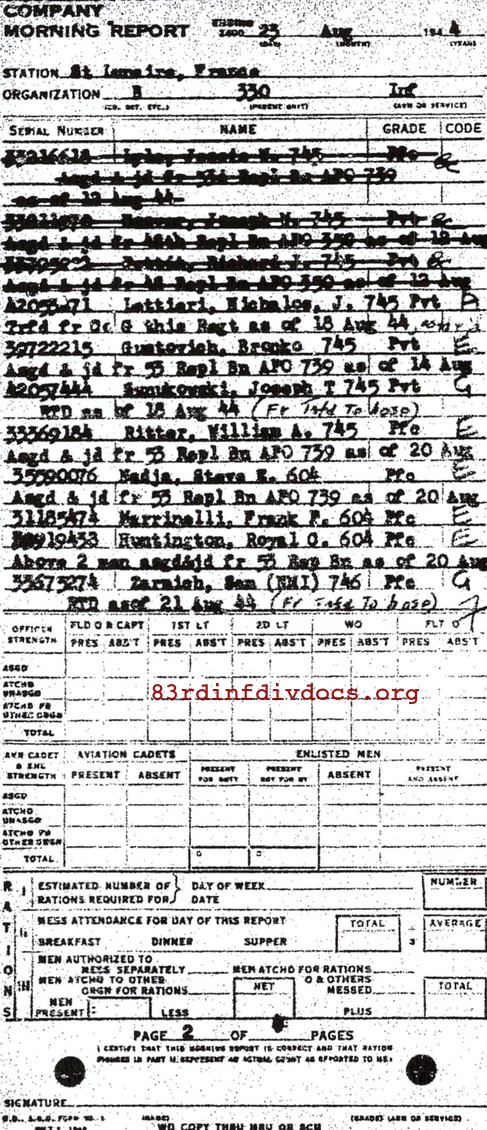 COMPANY
MORNING REPORT ENDING 2400 23 Aug 1944
(DAY) (MONTH) (YEAR)
STATION St , France
ORGANIZATION B 330 Inf
(CO. DET. ETC.) (PARENT UNIT) (ARM OR SERVICE)
SERIAL NUMBER NAME GRADE CODE
745 Pfc
Asgd & jd fr Repl Bn APO 739
as of 12 Aug 44
Joseph 745 Pvt
Asgd & jd fr Repl Bn APO 350 as of 12 Aug
Richard J. 745 Pvt
Asgd & jd fr 48 Repl Bn APO 350 as of 12 Aug
Lettieri, Nicholas, J. 745 Pvt
Trfd fr Co G this Regt as of 18 Aug 44
39722215 Gustovich, Bronko 745 Pvt E
Asgd & jd fr 53 Repl Bn APO 739 as of 14 Aug
42057444 Joseph T 745 Pvt G
RTD as of 18 Aug 44 (Fr Tsfd To hosp)
33369184 Ritter, William A. 745 Pfc E
Asgd & jd fr 53 Repl Bn APO 739 as of 20 Aug
35590076 Nadja, Steve 604 Pfc E
Asgd & jd fr 53 Repl Bn APO 739 as of 20 Aug
31185474 Marrinelli, Frank P. 604 Pfc E
Huntington, Royal O. 604 Pfc E
Above 2 men asgd&jd fr 53 Rep Bn as of 20 Aug
33675274 Zaraich, Sam (NMI) 746 Pfc G
RTD as of 21 Aug 44 (Fr Tsfd To hosp)
OFFICER STRENGTH FLD O R CAPT 1ST LT 2D LT WO FLT O
PRES ABS'T PRES ABS'T PRES ABS'T PRES ABS'T PRES ABS'T
ASGD
ATCHD UNASGD
83rdinfdivdocs.org
ATCHD FR OTHER ORGN
TOTAL
AVN CADET & ENL STRENGTH AVIATION CADETS ENLISTED MEN
PRESENT ABSENT PRESENT FOR DUTY PRESENT NOT FOR DY ABSENT PRESENT AND ABSENT
ASGD
ATCHD UNASGD
ATCHD FR OTHER ORGN
TOTAL
RATIONS
I ESTIMATED NUMBER OF RATIONS REQUIRED FOR DAY OF WEEK DATE NUMBER
II MESS ATTENDANCE FOR DAY OF THIS REPORT TOTAL AVERAGE
BREAKFAST DINNER SUPPER 3
III MEN AUTHORIZED TO MESS SEPARATELY MEN ATCHD FOR RATIONS
MEN ATCHD TO OTHER ORGN FOR RATIONS NET O & OTHERS MESSED TOTAL
MEN PRESENT LESS PLUS
PAGE 2 OF PAGES
I CERTIFY THAT THIS MORNING REPORT IS CORRECT AND THAT RATION
FIGURES IN PART III REPRESENT AN ACTUAL COUNT AS REPORTED TO ME:
SIGNATURE
(NAME) (GRADE) (ARM OR SERVICE)
WD COPY THRU MRU OR SCU